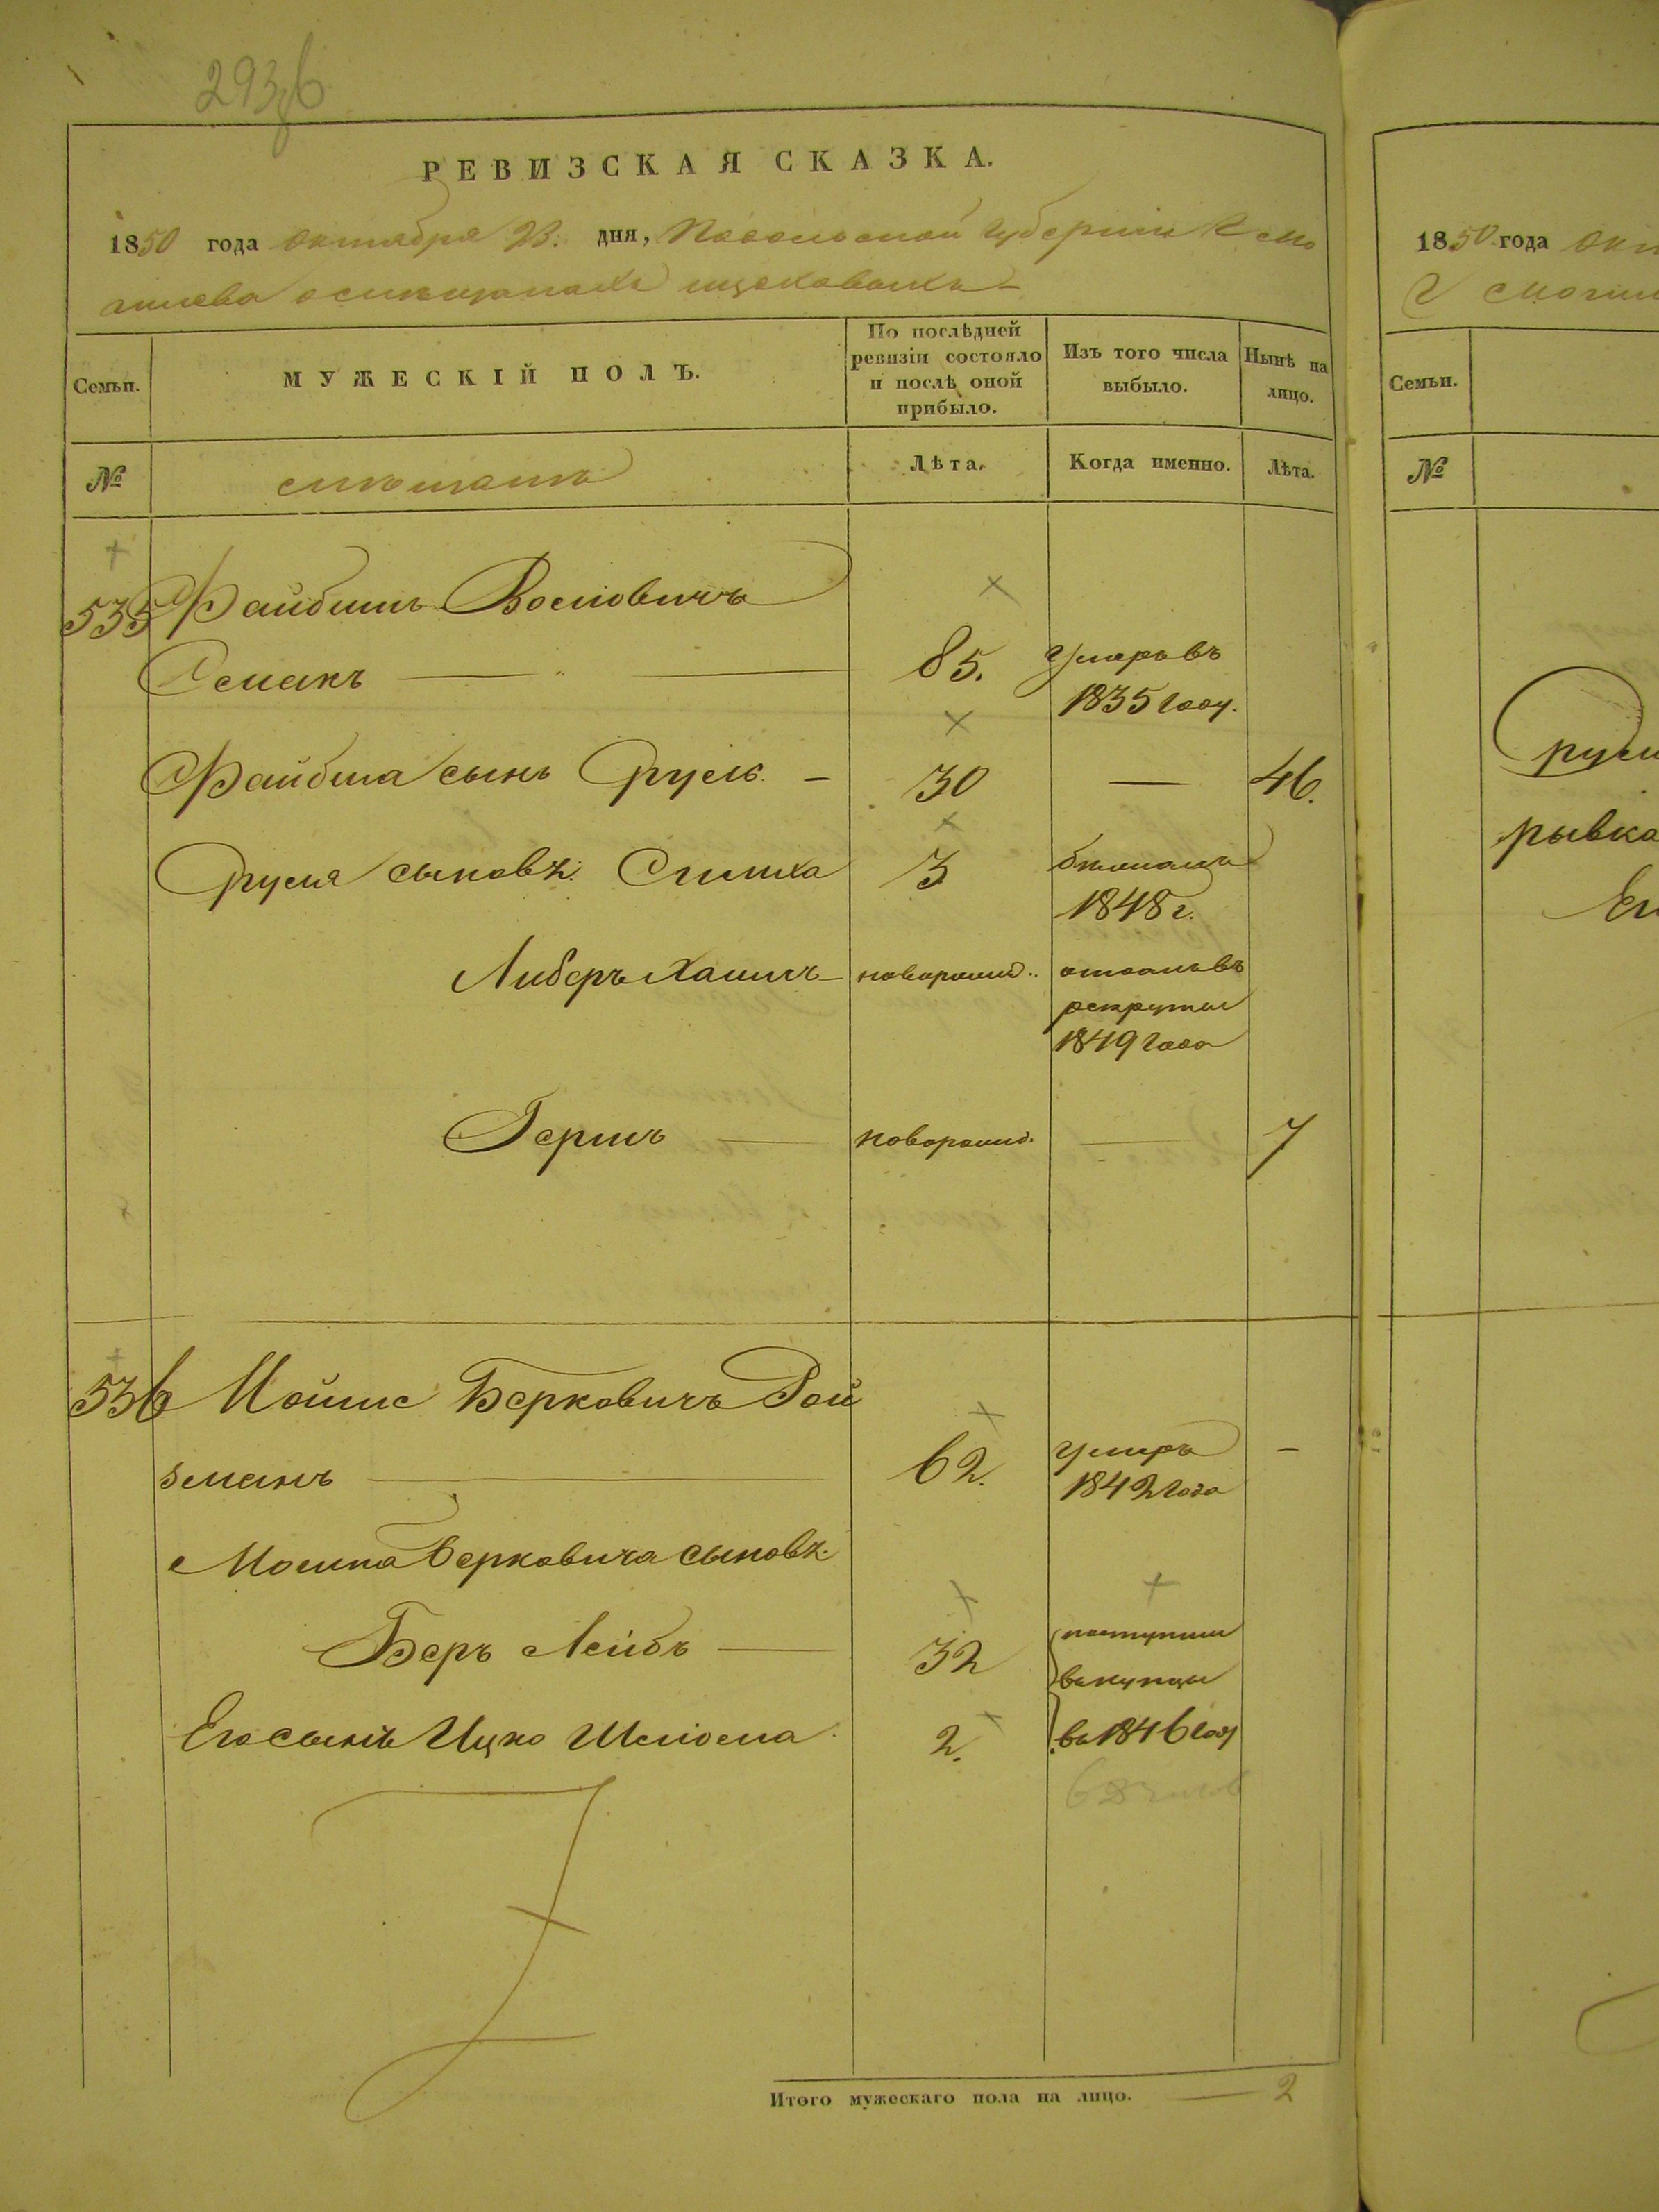 293
РЕВИЗСКАЯ СКАЗКА.
1850 года октября 23. дня, Подольской губерніи г Мо
гилева о мѣщанахъ
Семьи.
МУЖЕСКІЙ ПОЛЪ.
По послѣдней ревизіи состояло и послѣ оной прибыло.
Изъ того числа выбыло.
Нынѣ на лицо.
№
Лѣта.
Когда именно.
Лѣта.
535 Файбишъ
85. умеръ въ
1835 году.
Файбиша сынъ Сруль — 30 — 46.
Сруля сыновѣ: Симха 3
1848 г.
Либеръ Хаимъ новорожд. отданъ въ
рекруты
1849 года
Гершъ новорожд. — 7
536 Мойше Берковичъ Рой
зманъ 62. умеръ —
1842 года
Мошка Берковича сыновѣ:
Беръ Лейбъ — 32 поступили
въ купцы
Его сынъ Ицко Шлиома 2. въ 1846 году
Итого мужескаго пола на лицо. — 2
1850 года окт
г Могил
Семьи.
№
рывка